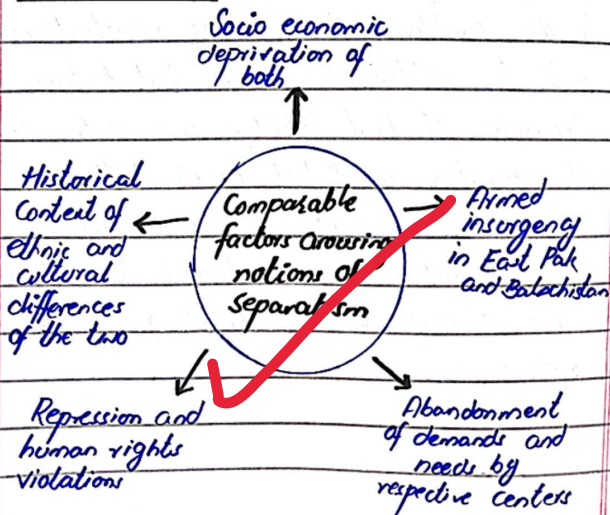 Socio economic
deprivation of
both
Historical
Context of
ethnic and
cultural
differences
of the two
Comparable
factors arousing
notions of
separatism
Armed
insurgency
in East Pak
and Balochistan
Repression and
human rights
violations
Abandonment
of demands and
needs by
respective centers